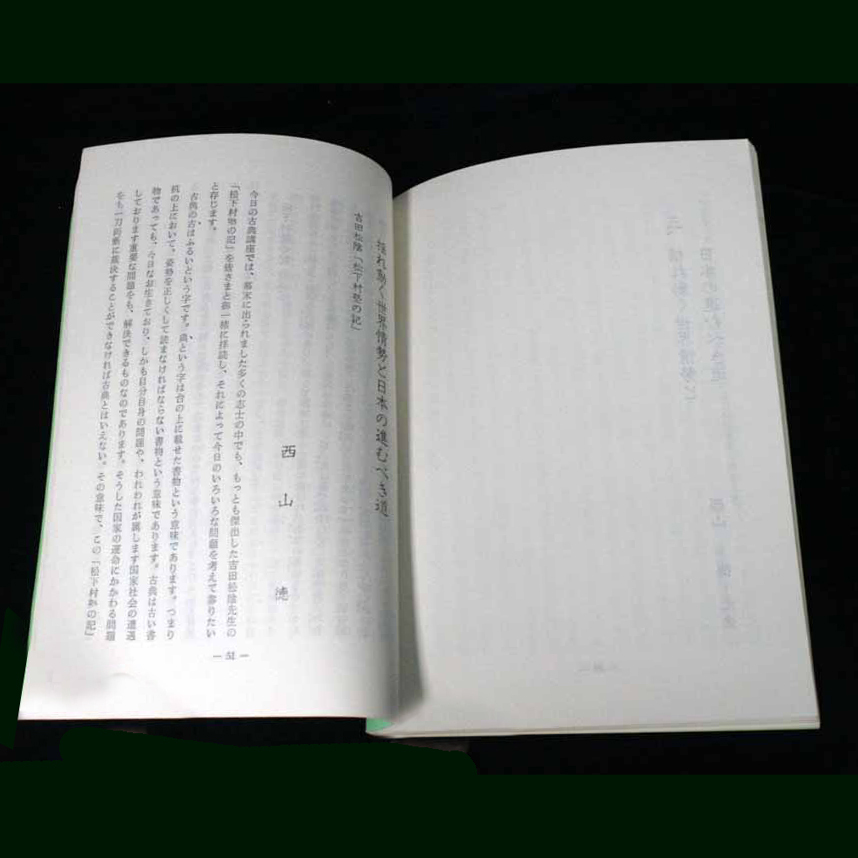 揺れ動く世界情勢と日本の進むべき道
吉田松陰「松下村塾の記」
西山 徳
今日の古典講座では、幕末に出られました多くの志士の中でも、もっとも傑出した吉田松陰先生の
「松下村塾の記」を皆さまと御一緒に拝読し、それによって今日のいろいろな問題を考えて参りたい
と存じます。
古典の古はふるいという字です。典という字は台の上に載せた書物という意味であります。つまり
机の上において、姿勢を正しくして読まなければならない書物という意味であります。古典は古い書
物であっても、今日なお生きており、しかも自分自身の問題や、われわれが属します国家社会の遭遇
しております重要な問題をも、解決できるものなのであります。そうした国家の運命にかかわる問題
をも一刀両断に裁決することができなければ古典とはいえない。その意味で、この「松下村塾の記」
— 51 —